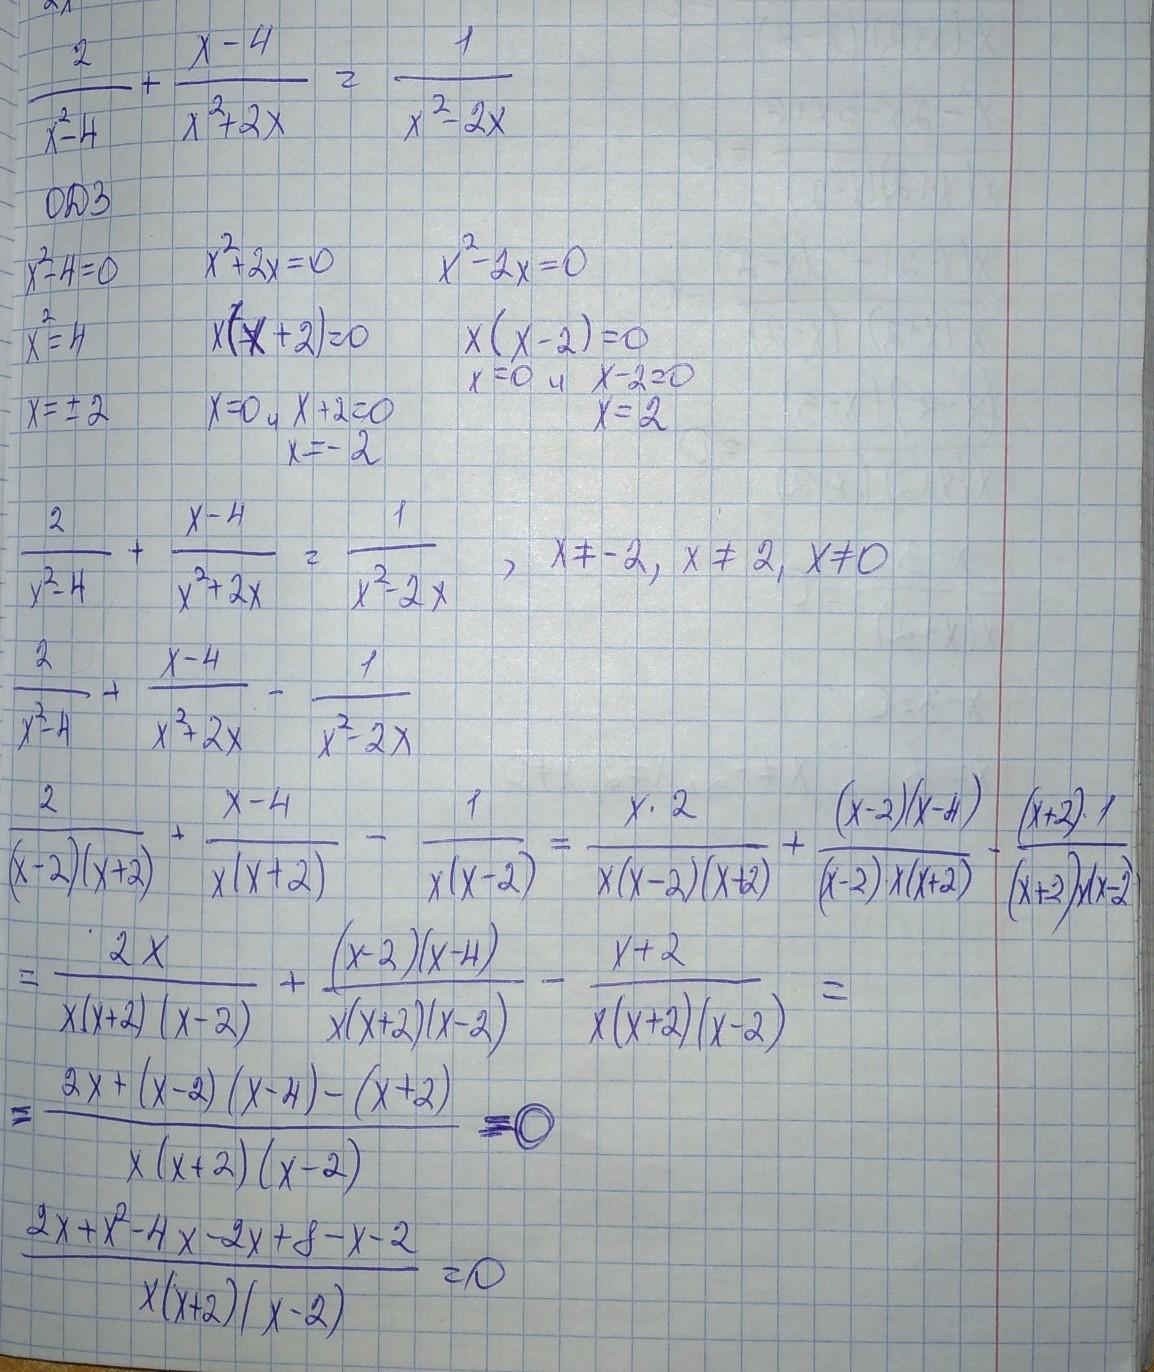 2/(x²-4) + (x-4)/(x²+2x) = 1/(x²-2x)
ОДЗ
x²-4=0 x²+2x=0 x²-2x=0
x²=4 x(x+2)=0 x(x-2)=0
x=0 и x-2=0
x=±2 x=0 и x+2=0 x=2
x=-2
2/(x²-4) + (x-4)/(x²+2x) = 1/(x²-2x) , x≠-2, x≠2, x≠0
2/(x²-4) + (x-4)/(x²+2x) - 1/(x²-2x)
2/((x-2)(x+2)) + (x-4)/(x(x+2)) - 1/(x(x-2)) = (x·2)/(x(x-2)(x+2)) + ((x-2)(x-4))/((x-2)x(x+2)) - ((x+2)·1)/((x+2)x(x-2))
= 2x/(x(x+2)(x-2)) + ((x-2)(x-4))/(x(x+2)(x-2)) - (x+2)/(x(x+2)(x-2)) =
= (2x+(x-2)(x-4)-(x+2))/(x(x+2)(x-2)) =0
(2x+x²-4x-2x+8-x-2)/(x(x+2)(x-2)) =0